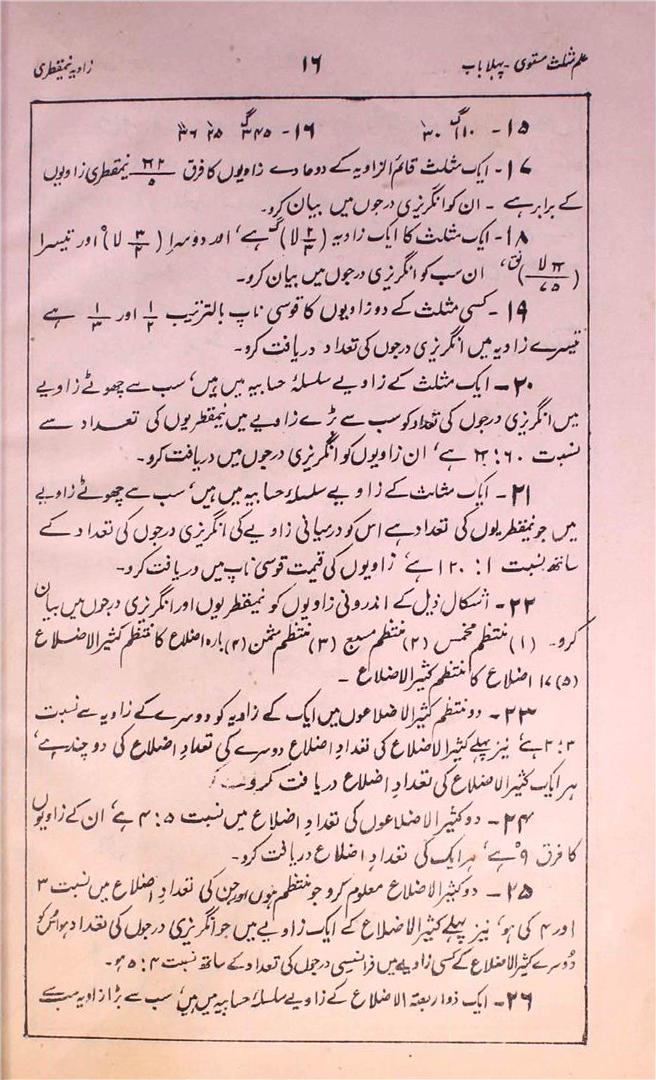 علم مثلث مستوی - پہلا باب ۱۶ زاویہ نیمقطری
۱۵ - ۱۱۰گ ۳۰ ۱۶ - ۳۴۵گ ۲۵ ۳۶
۱۷ - ایک مثلث قائم الزاویہ کے دو حادے زاویوں کا فرق ۲π/۵ نیمقطری زاویوں
کے برابر ہے - ان کو انگریزی درجوں میں بیان کرو۔
۱۸ - ایک مثلث کا ایک زاویہ (۲/۳ لا)گ ہے، اور دوسرا (۳/۲ لا)° اور تیسرا
(π لا/۷۵)نق، ان سب کو انگریزی درجوں میں بیان کرو۔
۱۹ - کسی مثلث کے دو زاویوں کا قوسی ناپ بالترتیب ۱/۲ اور ۱/۳ ہے
تیسرے زاویہ میں انگریزی درجوں کی تعداد دریافت کرو۔
۲۰ - ایک مثلث کے زاویے سلسلۂ حسابیہ میں ہیں، سب سے چھوٹے زاویے
میں انگریزی درجوں کی تعداد کو سب سے بڑے زاویے میں نیمقطریوں کی تعداد سے
نسبت ۶۰ : π ہے، ان زاویوں کو انگریزی درجوں میں دریافت کرو۔
۲۱ - ایک مثلث کے زاویے سلسلۂ حسابیہ میں ہیں، سب سے چھوٹے زاویے
میں جو نیمقطریوں کی تعداد ہے اس کو درمیانی زاویے کی انگریزی درجوں کی تعداد کے
ساتھ نسبت ۱ : ۱۲۰ ہے، زاویوں کی قیمت قوسی ناپ میں دریافت کرو۔
۲۲ - اشکال ذیل کے اندرونی زاویوں کو نیمقطریوں اور انگریزی درجوں میں بیان
کرو۔ (۱) منتظم مخمس (۲) منتظم مسبع (۳) منتظم مثمن (۴) بارہ اضلاع کا منتظم کثیر الاضلاع
(۵) ۱۷ اضلاع کا منتظم کثیر الاضلاع -
۲۳ - دو منتظم کثیر الاضلاعوں میں ایک کے زاویہ کو دوسرے کے زاویہ سے نسبت
۳ : ۲ ہے، نیز پہلے کثیر الاضلاع کی تعدادِ اضلاع دوسرے کی تعدادِ اضلاع کی دو چند ہے،
ہر ایک کثیر الاضلاع کی تعدادِ اضلاع دریافت کرو۔
۲۴ - دو کثیر الاضلاعوں کی تعدادِ اضلاع میں نسبت ۵ : ۴ ہے، ان کے زاویوں
کا فرق ۹° ہے، ہر ایک کی تعدادِ اضلاع دریافت کرو۔
۲۵ - دو کثیر الاضلاع معلوم کرو جو منتظم ہوں اور جن کی تعدادِ اضلاع میں نسبت ۳
اور ۴ کی ہو، نیز پہلے کثیر الاضلاع کے ایک زاویے میں جو انگریزی درجوں کی تعداد ہو اس کو
دوسرے کثیر الاضلاع کے کسی زاویے میں فرانسیسی درجوں کی تعداد کے ساتھ نسبت ۴ : ۵ ہو۔
۲۶ - ایک ذو اربعۃ الاضلاع کے زاویے سلسلۂ حسابیہ میں ہیں، سب سے بڑا زاویہ سب سے